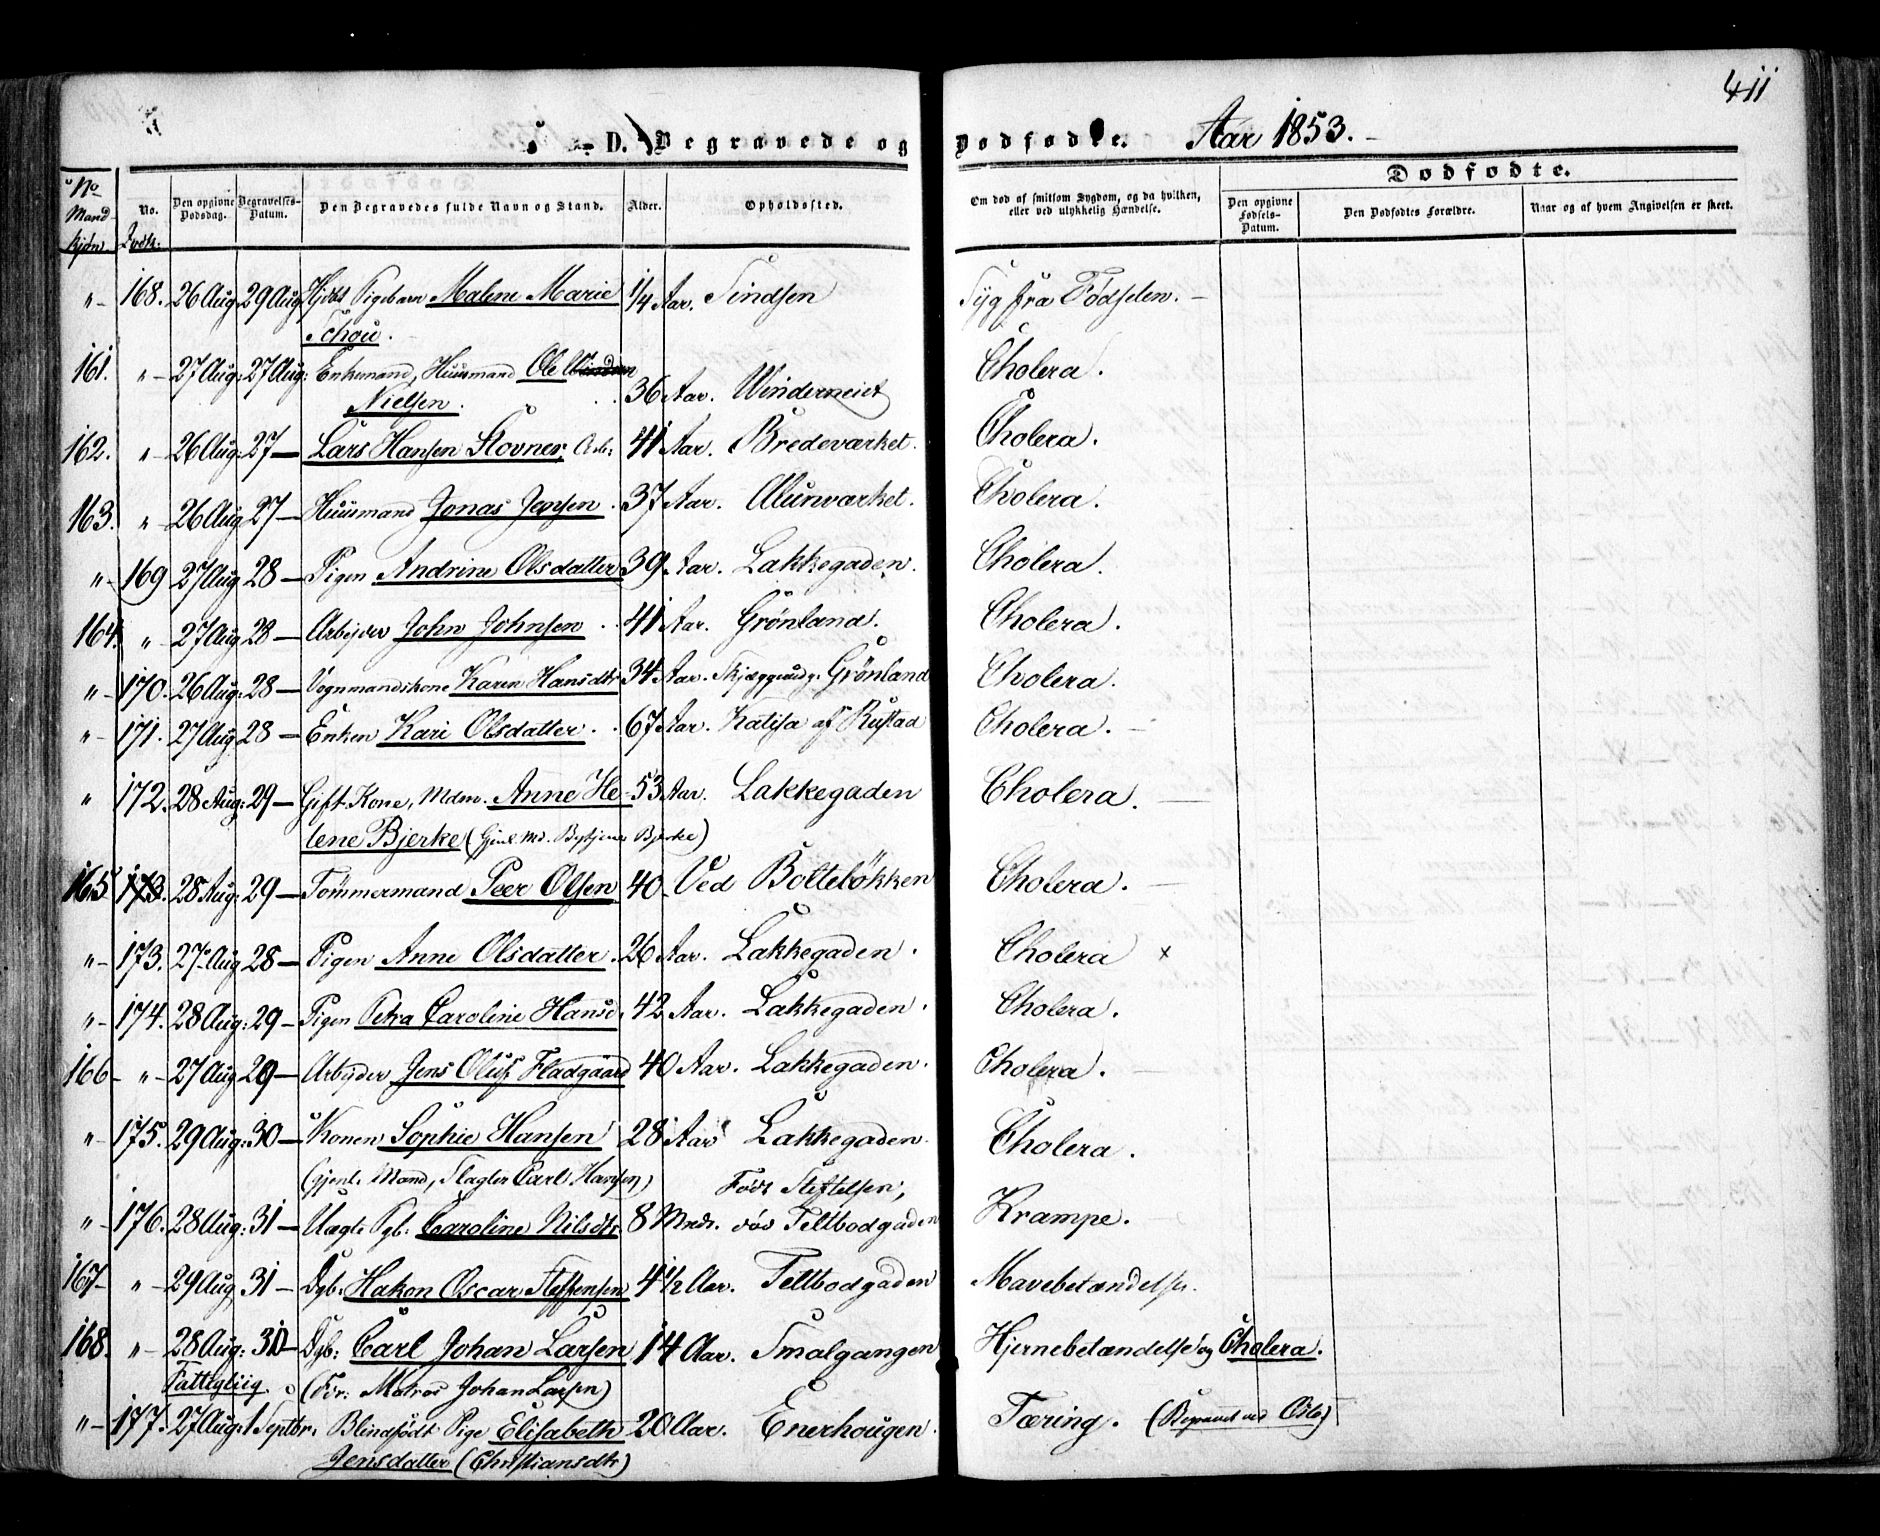 411
D. Begravede og Dødfødte. Aar 1853.
Dødfødte.
No Mandkjøn
No. Qvdk:
Den opgivne Dødsdag.
Begravelses-Datum.
Den Begravedes fulde Navn og Stand.
Alder.
Opholdssted.
Om død af smitsom Sygdom, og da hvilken, eller ved ulykkelig Hændelse.
Den opgivne Fødsels-Datum.
Den Dødfødtes Forældre.
Naar og af hvem Angivelsen er skeet.
"- 168. 26 Aug. 29 Aug. Pigebarn Malene Marie 1/4 Aar. Tindsen Syg fra Fødselen. -
Schou.
161. "- 27 Aug: 27 Aug: Enkemand, Huusmand Ole 
Nielsen. 36 Aar. Winderneiet Cholera.
162. "- 26 Aug: 27 - Lars Hansen Stovner, Arb: 41 Aar. Bredeværket. Cholera.
163. " 26 Aug 27 - Huusmand Jonas Jensen. 37 Aar. Alunværket. Cholera.
"- 169 27 Aug 28 - Pigen Andrine Olsdatter 39 Aar. Lakkegaden. Cholera.
164. " 27 Aug 28 - Arbejder John Johnsen. 41 Aar. Grönland. Cholera.
"- 170. 26 Aug: 28 - Vognmandskone Karen Hansdtr 34 Aar. Grönland Cholera.
"- 171. 27 Aug 28 - Enken Kari Olsdatter. 67 Aar. Katisa af Rustad Cholera. -
" 172. 28 Aug: 29 - Gift Kone, Mdm. Anne He- 53 Aar. Lakkegaden Cholera. -
lene Bjerke (Gjenl. Md. Bjerke)
165 173. 28 Aug: 29 - Tömmermand Peer Olsen 40 - Ved Bolteløkken Cholera. -
"- 173. 27 Aug 28 - Pigen Anne Olsdatter. 26 Aar. Lakkegaden. Cholera x
"- 174. 28 Aug: 29 - Pigen Petra Caroline Hansd. 42 Aar. Lakkegaden. Cholera.
166 - "- 27 Aug 29 - Arbejder Jens Oluf Fladgaard 40 Aar. Lakkegaden. Cholera.
"- 175. 29 Aug: 30 - Konen Sophie Hansen 28 Aar Lakkegaden. Cholera.
(gjenl. Mand, Slagter Carl Hansen) Föds Stiftelsen,
"- 176. 28 Aug: 31 - Uægte Pgb: Caroline Nilsdtr. 8 Mndr. Teltbodgaden Krampe.
167 - "- 29 Aug 31 - Dgb: Hakon Oscar Steffensen 4 1/2 Aar. Teltbodgaden Mavebetændelse.
168. "- 28 Aug: 31 - Dgb: Carl Johan Larsen 14 Aar. Smalgangen Hjernebetændelse og Cholera.
Fattiglig. (For: Matros Johan Larsen)
"- 177. 27 Aug: 1 Septbr. Blindfödt Pige Elisabeth 20 Aar. Enerhougen. Tæring. (Begravet ved Oslo)
Jensdatter (Christiansdtr)